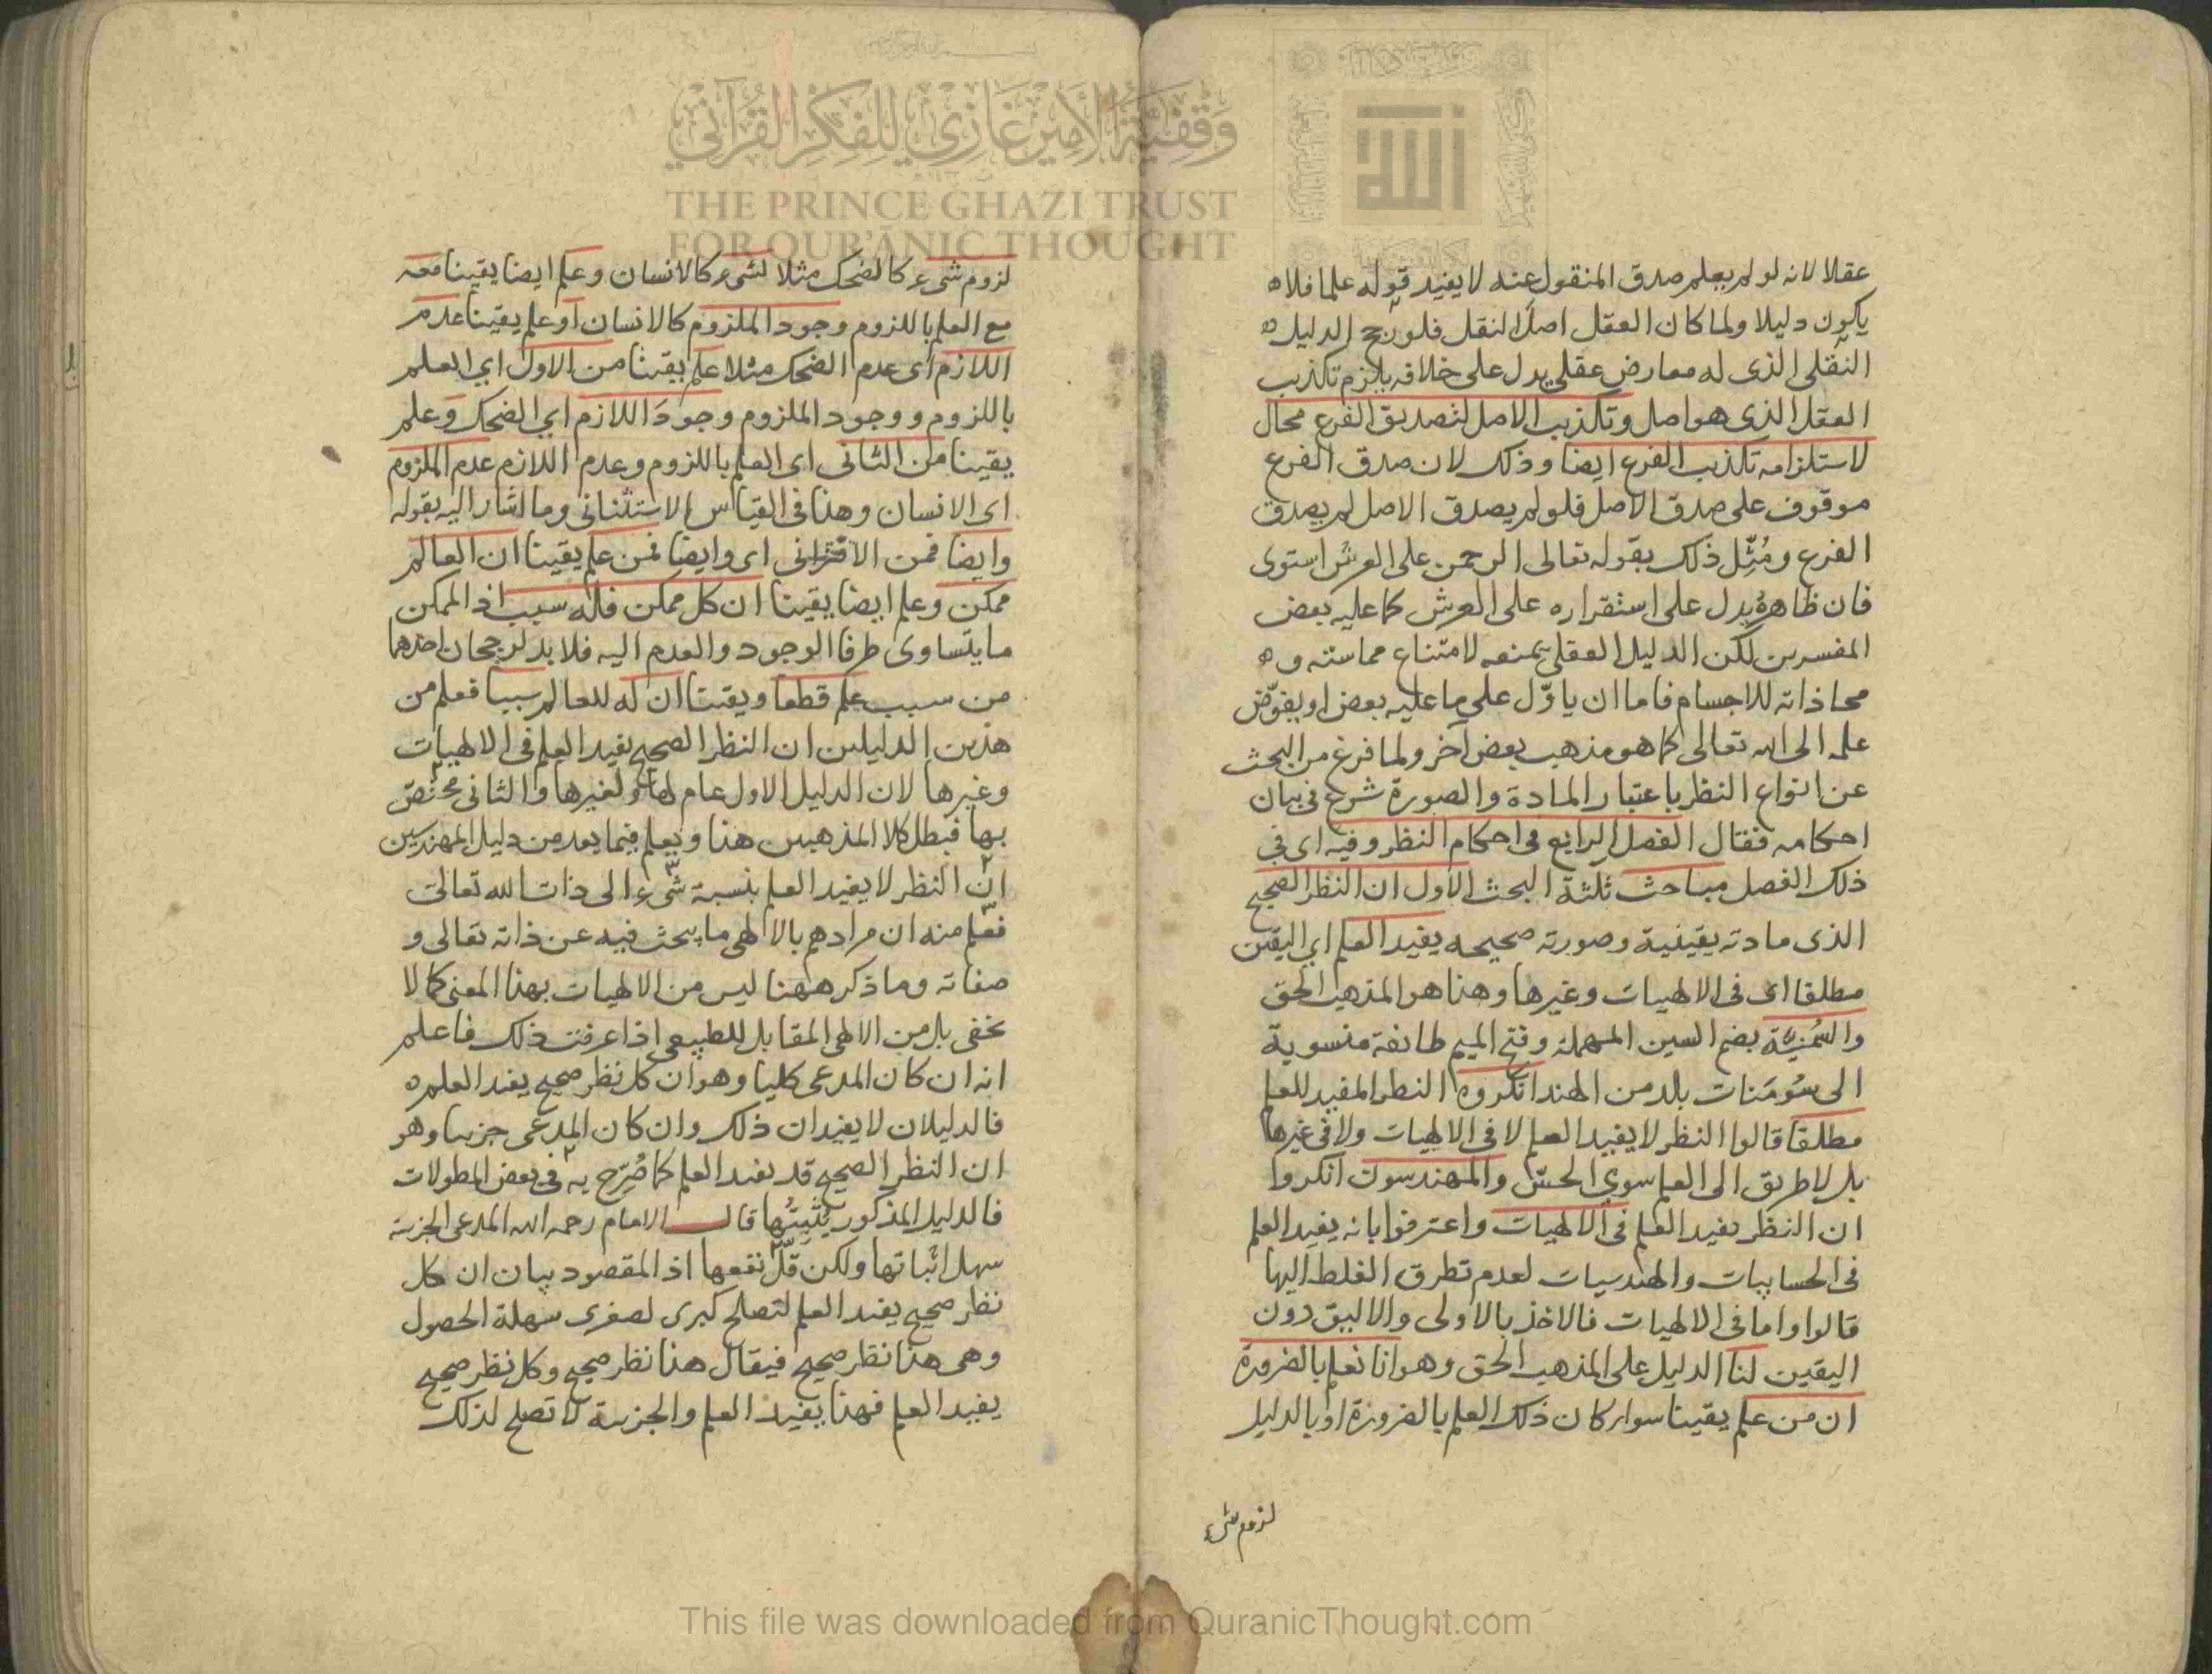 عقلا لانه لو لم يعلم صدق المنقول عنه لا يفيد قوله علما فلا
يكون دليلا ولما كان العقل اصل النقل فلو رجح الدليل
النقلى الذى له معارض عقلى يدل على خلافه يلزم تكذيب
العقل الذى هو اصل وتكذيب الاصل لتصديق الفرع محال
لاستلزامه تكذيب الفرع ايضا وذلك لان صدق الفرع
موقوف على صدق الاصل فلو لم يصدق الاصل لم يصدق
الفرع ومُثِّل ذلك بقوله تعالى الرحمن على العرش استوى
فان ظاهرهُ يدل على استقراره على العرش كما عليه بعض
المفسرين لكن الدليل العقلى يمنعه لامتناع مماسته و
محاذاته للاجسام فاما ان ياوّل على ما عليه بعض او يفوّض
علمه الى الله تعالى كما هو مذهب بعض آخر ولما فرغ من البحث
عن انواع النظر باعتبار المادة والصورة شرع فى بيان
احكامه فقال الفصل الرابع فى احكام النظر وفيه اى فى
ذلك الفصل مباحث ثلثة البحث الاول ان النظر الصحيح
الذى مادته يقينية وصورته صحيحه يفيد العلم اى اليقين
مطلقا اى فى الالهيات وغيرها وهذا هو المذهب الحق
والسُّمَنيّة بضم السين المهملة وفتح الميم طائفة منسوبة
الى سُومَنات بلد من الهند انكروا النظر المفيد للعلم
مطلقا قالوا النظر لا يفيد العلم لا فى الالهيات ولا فى غيرها
بل لا طريق الى العلم سوى الحسّ والمهندسون انكروا
ان النظر يفيد العلم فى الالهيات واعترفوا بانه يفيد العلم
فى الحسابيات والهندسيات لعدم تطرق الغلط اليها
قالوا واما فى الالهيات فالاخذ بالاولى والاليق دون
اليقين لنا الدليل على المذهب الحق وهو انا نعلم بالضرورة
ان من علم يقينا سواء كان ذلك العلم بالضرورة او بالدليل
لزوم شىء
لزوم شىء كالضحك مثلا لشىء كالانسان وعلم ايضا يقينا معه
مع العلم باللزوم وجود الملزوم كالانسان او علم يقينا عدم
اللازم اى عدم الضحك مثلا علم يقينا من الاول اى العلم
باللزوم ووجود الملزوم وجودَ اللازم اى الضحك وعلم
يقينا من الثانى اى العلم باللزوم وعدم اللازم عدم الملزوم
اى الانسان وهذا فى القياس الاستثنائى وما اشار اليه بقوله
وايضا فمن الاقترانى اى وايضا فمن علم يقينا ان العالم
ممكن وعلم ايضا يقينا ان كل ممكن فله سبب اذ الممكن
ما يتساوى طرفا الوجود والعدم اليه فلا بد لرجحان احدهما
من سبب علم قطعا ويقينا ان له للعالم سببا فعلم من
هذين الدليلين ان النظر الصحيح يفيد العلم فى الالهيات
وغيرها لان الدليل الاول عام لها ولغيرها والثانى مختصّ
بها فبطل كلا المذهبين هذا ويعلم فيما بعد من دليل المهندسين
ان النظر لا يفيد العلم بنسبة شىء الى ذات الله تعالى
فعلم منه ان مرادهم بالالهى ما يبحث فيه عن ذاته تعالى و
صفاته وما ذكر ههنا ليس من الالهيات بهذا المعنى كما لا
يخفى بل من الالهى المقابل للطبيعى اذا عرفت ذلك فاعلم
انه ان كان المدعى كليا وهو ان كل نظر صحيح يفيد العلم
فالدليلان لا يفيدان ذلك وان كان المدعى جزئيا وهو
ان النظر الصحيح قد يفيد العلم كما صُرّح به فى بعض المطولات
فالدليل المذكور يُثبِتُها قال الامام رحمه الله المدعى الجزئية
سهل اثباتها ولكن قلّ نفعها اذ المقصود بيان ان كل
نظر صحيح يفيد العلم لتصلح كبرى لصغرى سهلة الحصول
وهى هذا نظر صحيح فيقال هذا نظر صحيح وكل نظر صحيح
يفيد العلم فهذا يفيد العلم والجزئية لا تصلح لذلك
وقفية الأمير غازي للفكر القرآني
THE PRINCE GHAZI TRUST
FOR QUR'ĀNIC THOUGHT
الله
This file was downloaded from QuranicThought.com